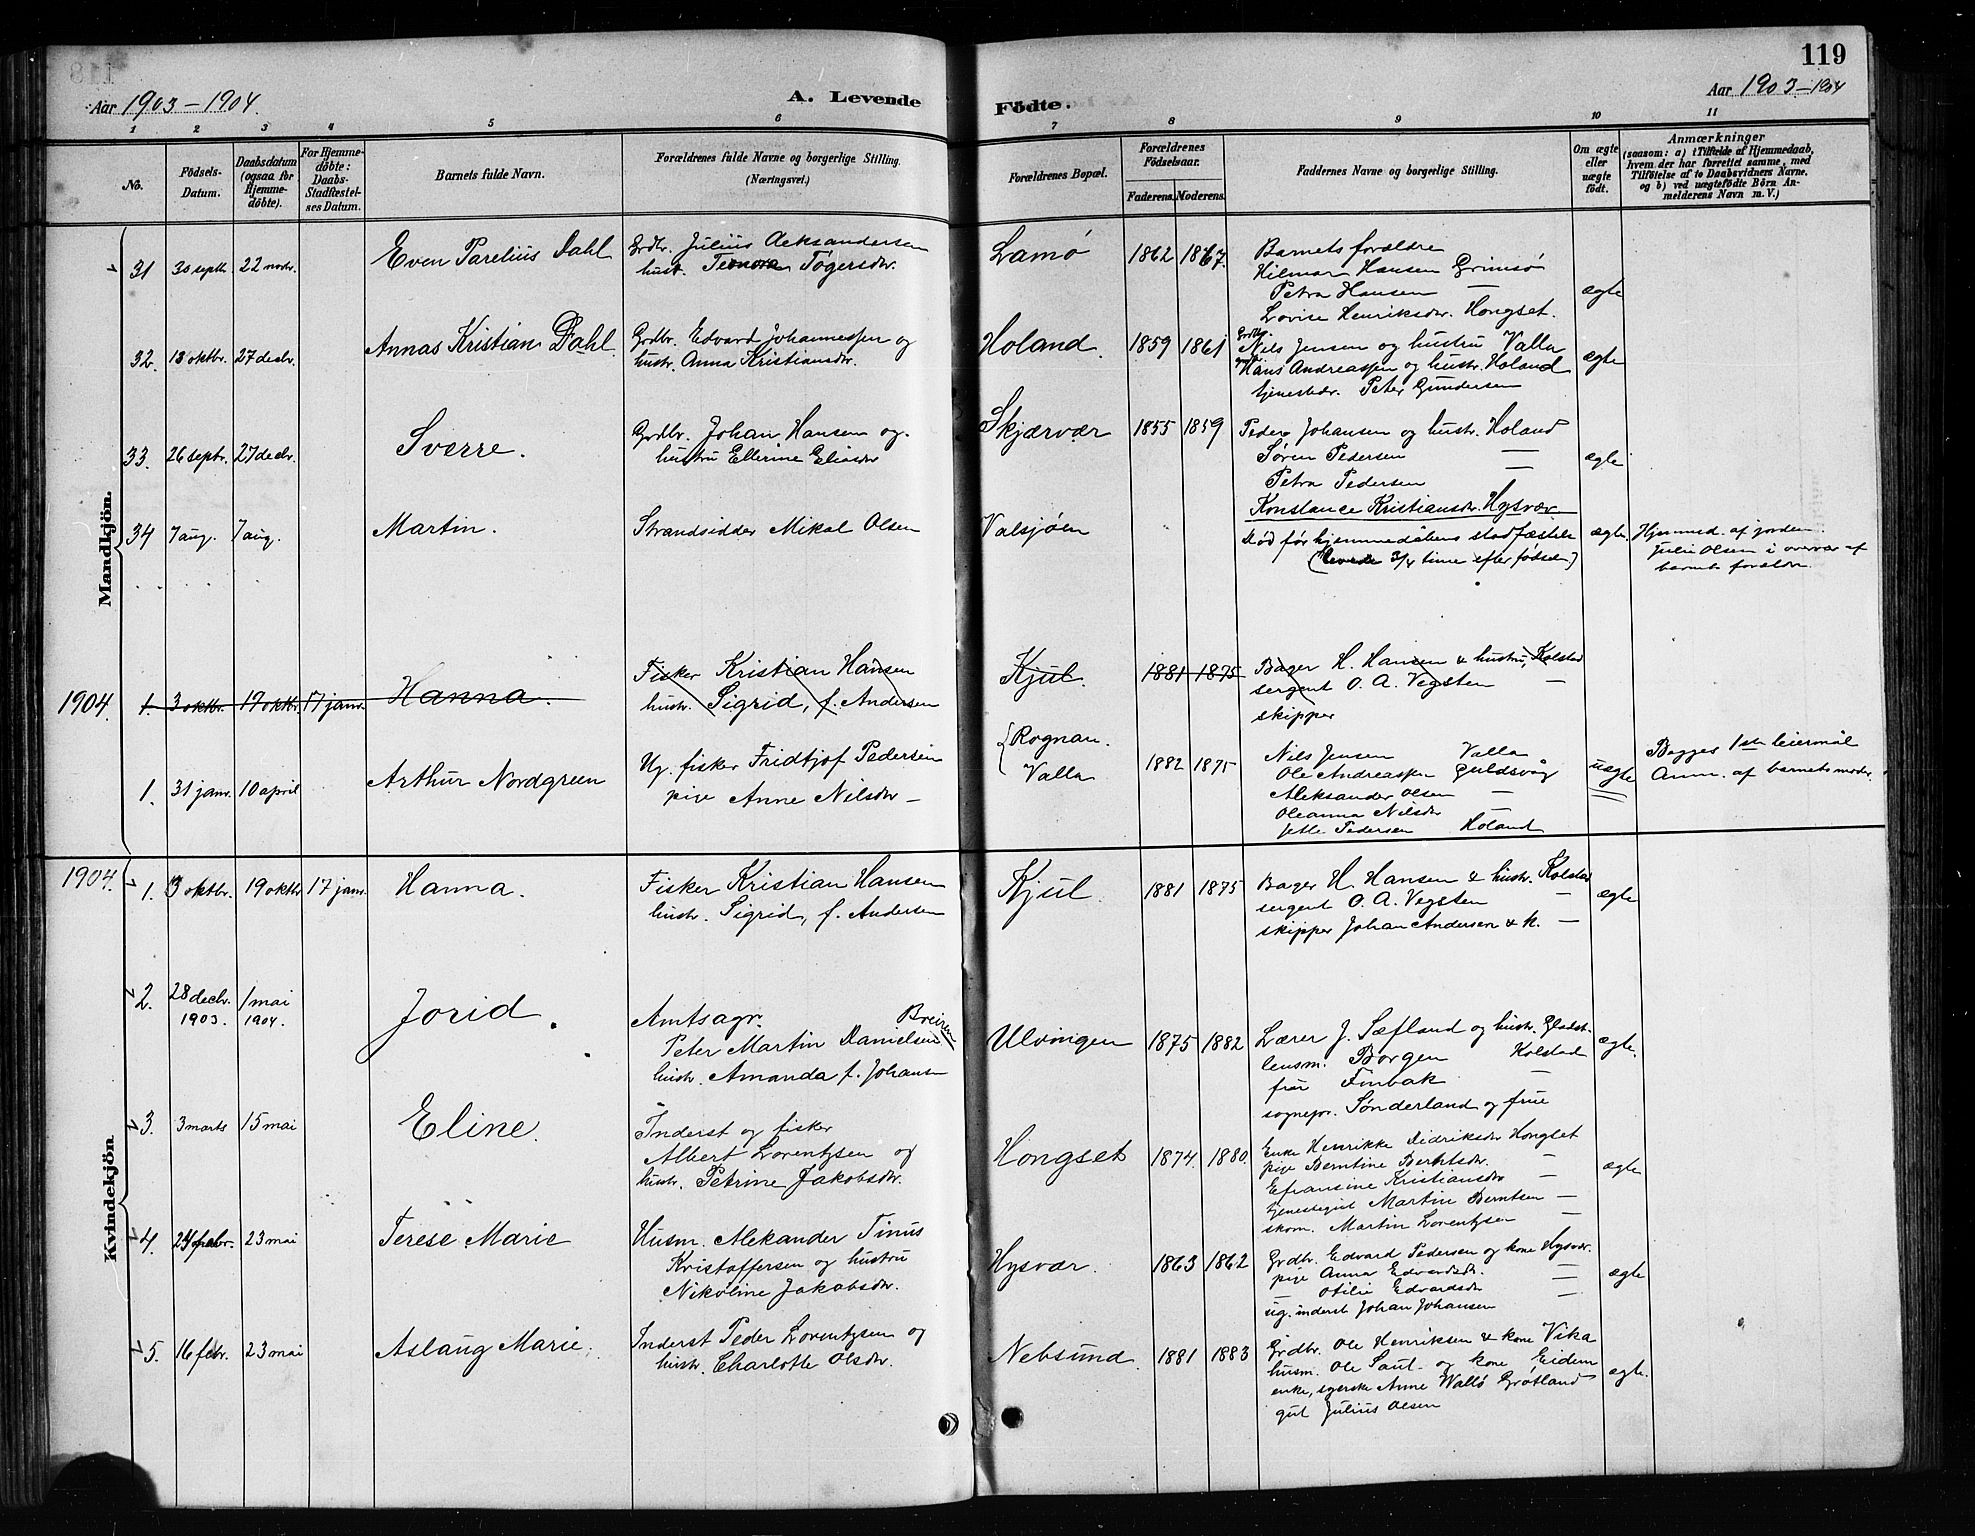 119
Aar 1903-1904.
A. Levende Födte.
Aar 1903-1904
1 2 3 4 5 6 7 8 9 10 11
No.
Födsels-Datum.
Daabsdatum (ogsaa for Hjemmedöbte).
For Hjemmedöbte: Daabs-Stadfæstelses Datum.
Barnets fulde Navn.
Forældrenes fulde Navne og borgerlige Stilling. (Næringsvei.)
Forældrenes Bopæl.
Forældrenes Födselsaar.
Faderens. Moderens.
Faddernes Navne og borgerlige Stilling.
Om ægte eller uægte födt.
Anmærkninger
(saasom: a) i Tilfælde af Hjemmedaab,
hvem der har forrettet samme, med
Tilföielse af to Daabsvidners Navne,
og b) ved uægtefödte Börn Anmelderens Navn m. V.)
Mandkjön.
31 30 septb. 22 novbr. Even Parelius Dahl
Grdbr. Julius Aeksandersen
hust. Tøgersdtr.
Lamø 1862 1867.
Barnets forældre
Hilmar Hansen Grimsø
Petra Hansen —
Lovise Henriksdtr. Hongset.
ægte
32. 13 oktbr. 27 decbr. Annas Kristian Dahl.
Grdbr. Edvard Johannessen og
hustr. Anna Kristiansdtr.
Holand. 1859 1861
Grdbr.
Nils Jensen og hustru Valla
Hans Andreassen og hustr. Holand
tjenestedr. Peter Gundersen
ægte
33. 26 septbr. 27 decbr. Sverre.
Grdbr. Johan Hansen og
hustru Ellerine Eliasdtr
Skjærvær 1855 1859
Peder Johansen og hustr. Holand
Søren Pedersen —
Petra Pedersen —
Konstance Kristiansdtr. Hysvær
ægte
34 7 aug. 7 aug. Martin.
Strandsidder Mikal Olsen
Valsjøen
død før hjemmedåbens stadfæstelse
(levede 3/4 time efter fødselen)
ægte.
Hjemmed. af jordem.
Julie Olsen i overvær af
barnets forældre.
1904. 1. 3 oktbr. 19 oktbr. 17 janr. Hanna.
Fisker Kristian Hansen
hustr. Sigrid, f. Andersen
Kjul. 1881 1875
Bager H. Hansen & hustru, Kolstad
sergent O. A. Vegsten —
skipper
1. 31 janr. 10 april Arthur Nordgreen
Ug. fisker Fridtjof Pedersen
pige Anne Nilsdtr —
Rognan.
Valla 1882 1875
Nils Jensen Valla
Ole Andreassen Guldsvåg
Aleksander Olsen —
Oleanna Nilsdtr —
Jette Pedersen Holand
uægte
Begges 1ste leiermål
Anm. af barnets moder
Kvindekjön.
1904. 1. 3 oktbr. 19 oktbr 17 janr. Hanna.
Fisker Kristian Hansen
hustr. Sigrid, f. Andersen
Kjul 1881 1875
Bager H. Hansen & hustr. Kolstad
sergent O. A. Vegsten —
skipper Johan Andersen & k. —
ægte
2. 28 decbr. 1903. 1 mai 1904. Jorid.
Amtsagr. Breiren
Peter Martin Danielsen
hustr. Amanda f. Johansen
Ulvingen 1875 1882
Lærer J. Sæfland og hustr. Gladst.
lensm. Borgen Kolstad
frøi Finbak —
sognepr. Sønderland og frue
ægte.
3. 3 marts 15 mai Eline.
Inderst og fisker
Albert Lorentzsen og
hustr. Petrine Jakobsdtr.
Hongset 1874. 1880.
Enke Henrikke Didriksdtr Hongset
pige Berntine Berntsdtr. —
Efransine Kristiansdtr —
tjenestegut Martin Berntsen —
skom. Martin Lorentzsen —
ægte
4. 24 febr. 23 mai Terese Marie
Husm. Alekander Tinus
Kristoffersen og hustru
Nikoline Jakobsdtr.
Hysvær. 1863 1862
Grdbr. Edvard Pedersen og kone Hysvær.
pige Anna Edvardsdtr. —
— Otilie Edvardsdtr —
ug. inderst Johan Johansen
ægte
5. 16 febr. 23 mai Aslaug Marie.
Inderst Peder Lorentzsen og
hustr. Charlotte Olsdtr.
Nebsund. 1881 1883
Grdbr. Ole Henriksen & kone Vika
husm. Ole Paul. og kone Eidem
enke, syerske Anne Wallø Grøtland
gut Julius Olsen
ægte.